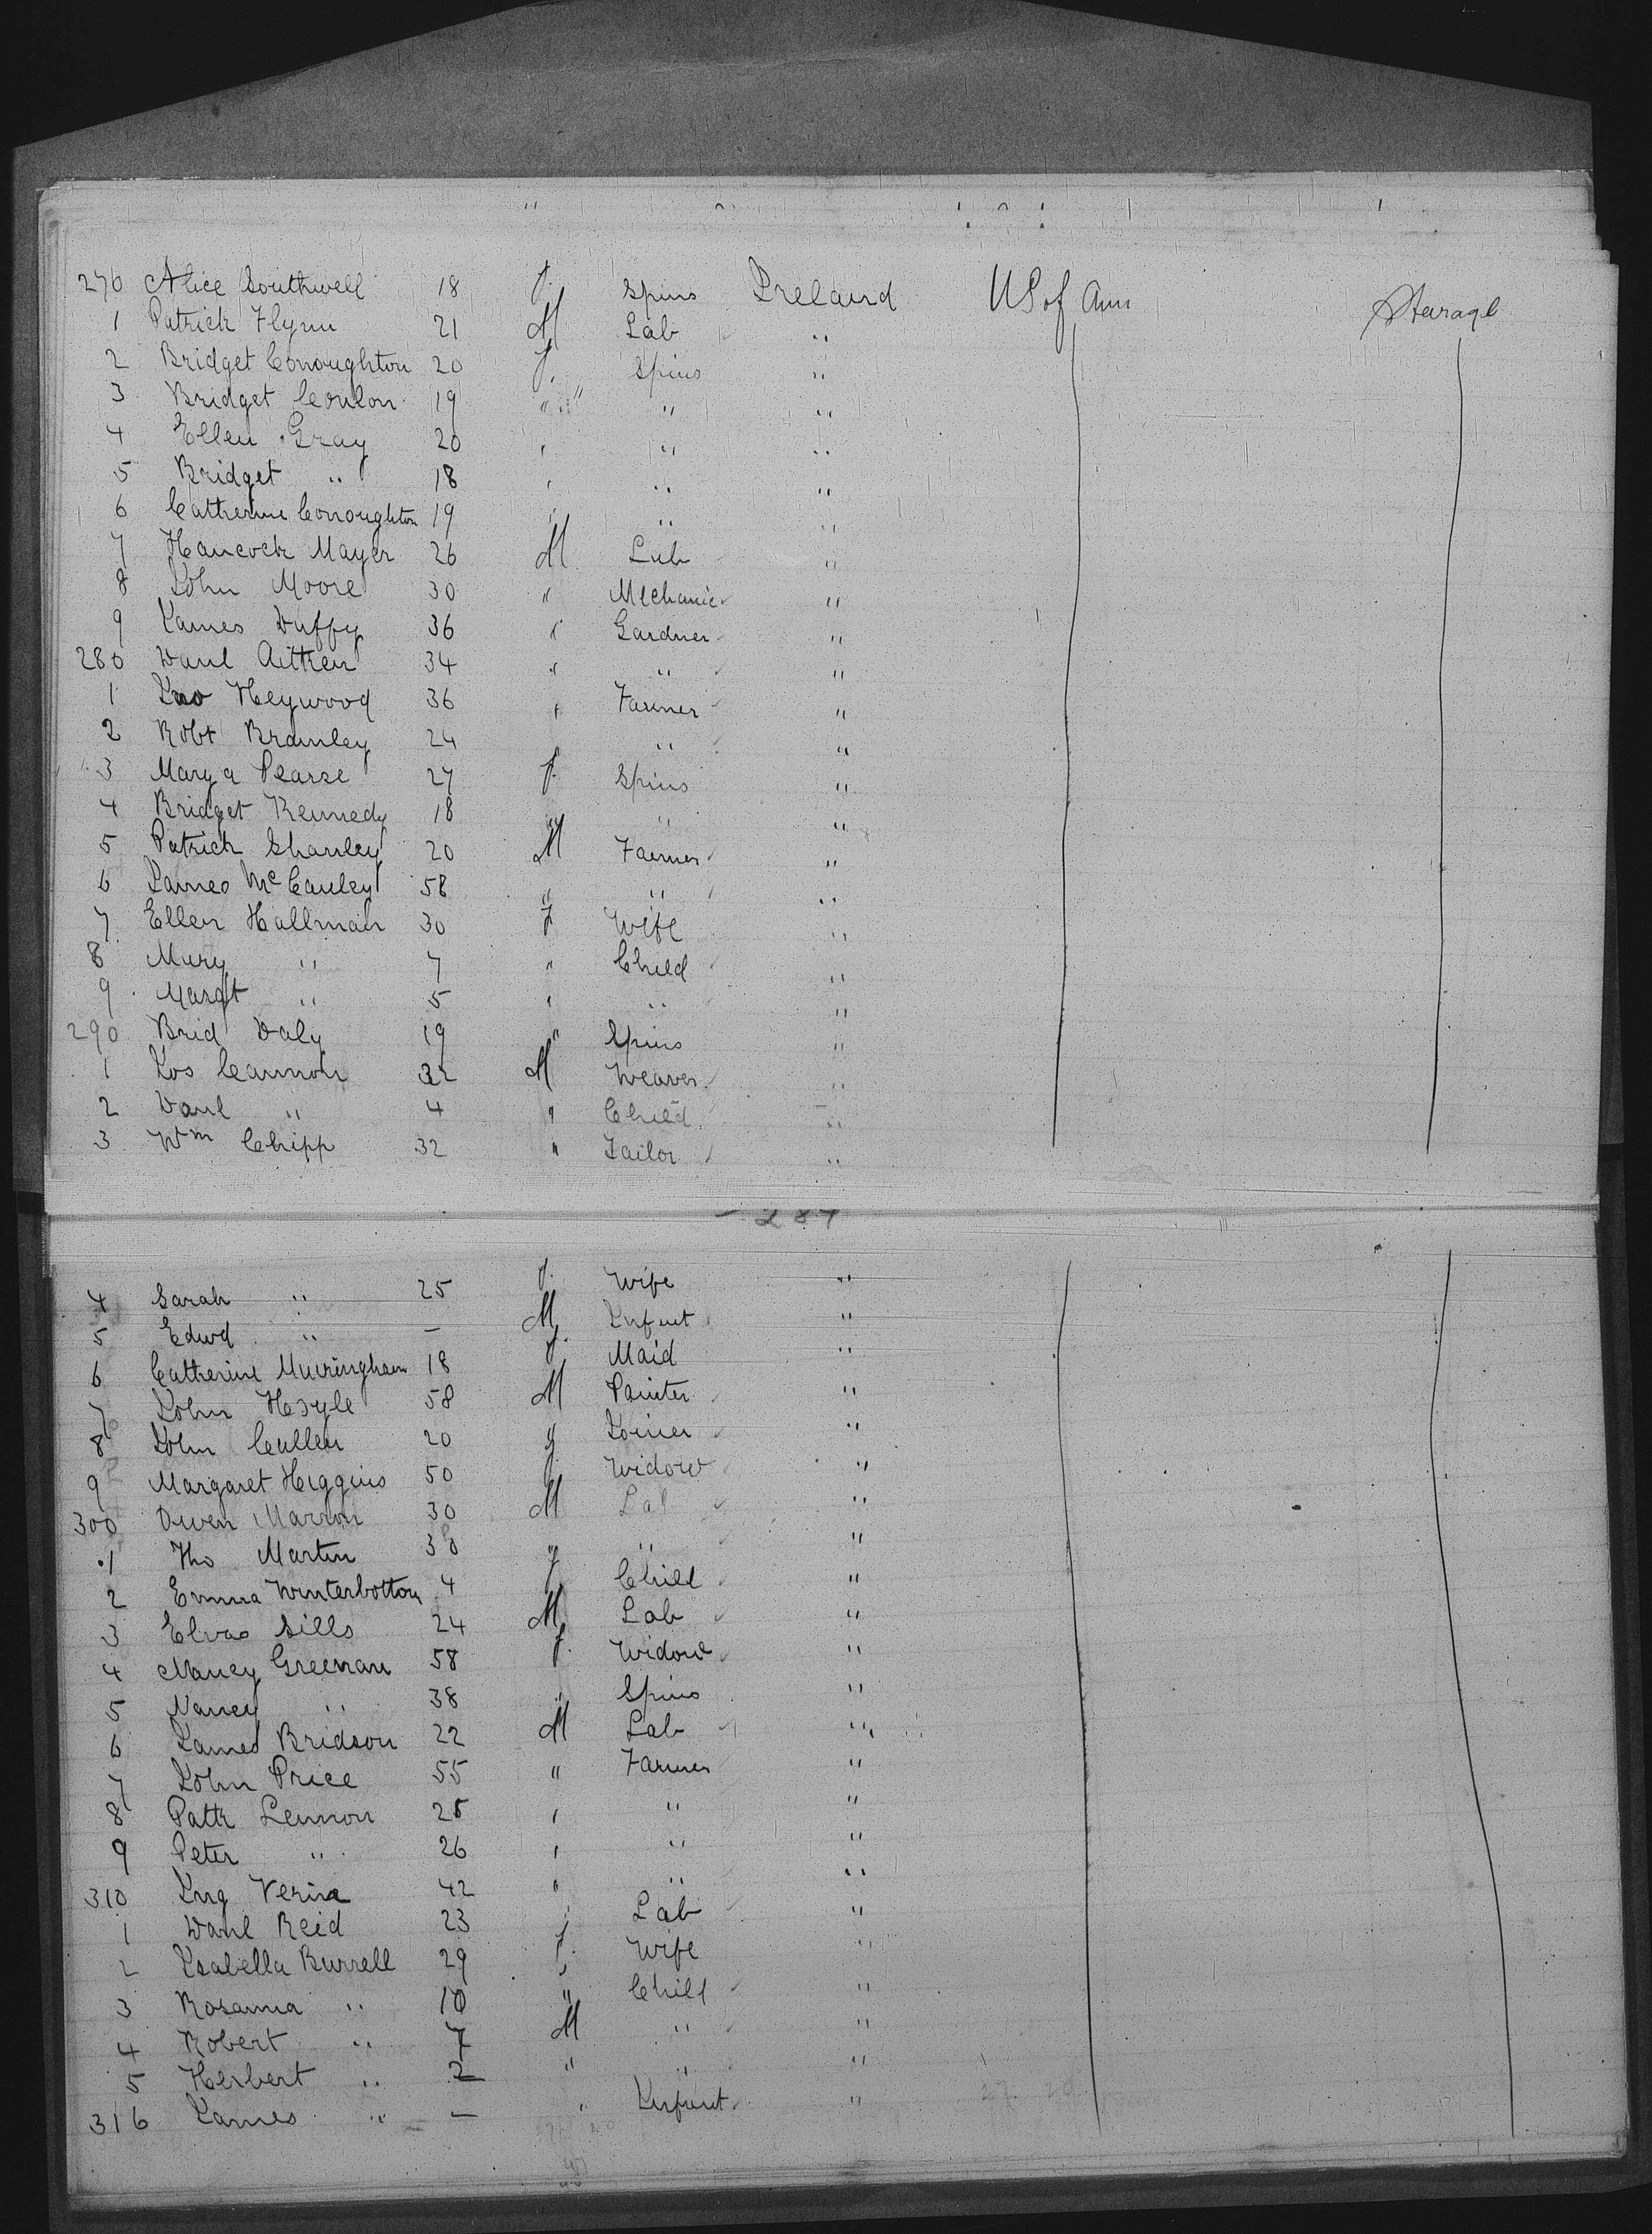 270 Alice Southwell 18 f. Spins Ireland US of Am Starage
1 Patrick Flynn 21 M Lab "
2 Bridget Conoughton 20 f. Spins "
3 Bridget Conlon 19 " " "
4 Ellen Gray 20 " " "
5 Bridget " 18 " " "
6 Catherine Conoughton 19 " " "
7 Hancock Mayer 26 M Lab "
8 John Moore 30 " Mechanic "
9 James Duffy 36 " Gardner "
280 Danl Aitken 34 " " "
1 Jno Heywood 36 " Farmer "
2 Robt Bramley 24 " "
3 Mary a Pearse 27 f. Spins "
4 Bridget Kennedy 18 " " "
5 Patrick Shanley 20 M Farmer "
6 James McCauley 58 " " "
7 Ellen Hallman 30 f Wife "
8 Mary " 7 " Child "
9 Margt " 5 " " "
290 Brid Daly 19 " Spins "
1 Jos Cannon 32 M Weaver "
2 Danl " 4 " Child "
3 Wm Chipp 32 " Tailor "
- 287
4 Sarah " 25 f. Wife "
5 Edwd " - M Infant "
6 Catherine 18 f. Maid "
7 John Hoyle 58 M Painter "
8 John Cullen 20 " Joiner "
9 Margaret Higgins 50 f. Widow "
300 Owen Marron 30 M Lab "
1 Tho Martin 30 " " "
2 Emma Winterbottom 4 f Child "
3 Elvas Sills 24 M Lab "
4 Nancy Greenan 58 f. Widow "
5 Nancy " 38 " Spins "
6 James Bridson 22 M Lab "
7 John Price 55 " Farmer "
8 Patk Lennon 25 " " "
9 Peter " 26 " " "
310 42 " " "
1 Danl Reid 23 " Lab "
2 Isabella Burrell 29 f. Wife "
3 Rosanna " 10 " Child "
4 Robert " 7 M " "
5 Herbert " 2 " " "
316 James " - " Infant "